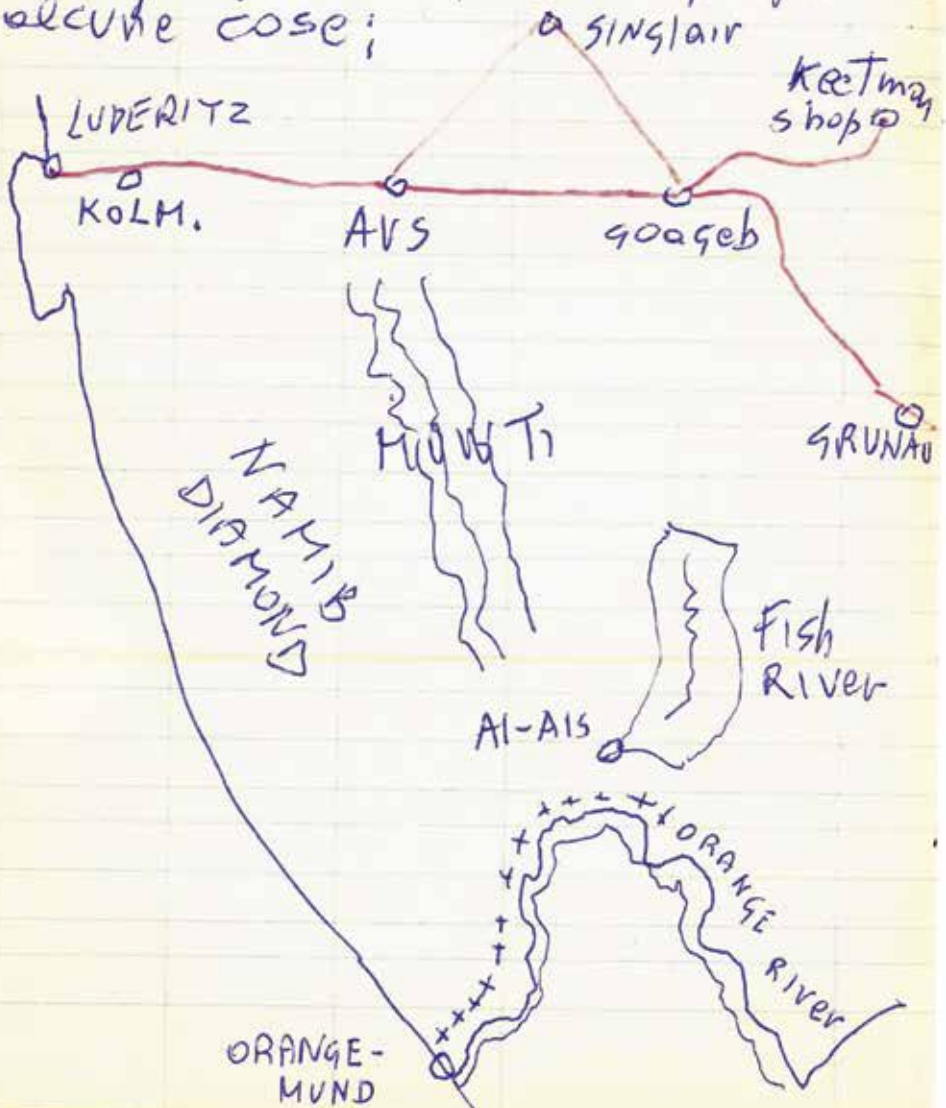 alcune cose;
SINGlair
KeeTman
shop
LUDERITZ
KOLM.
AUS
Goageb
GRUNAU
MUNTI
NAMIB
DIAMOND
Fish
River
AI-AIS
ORANGE
River
ORANGE-
MUND